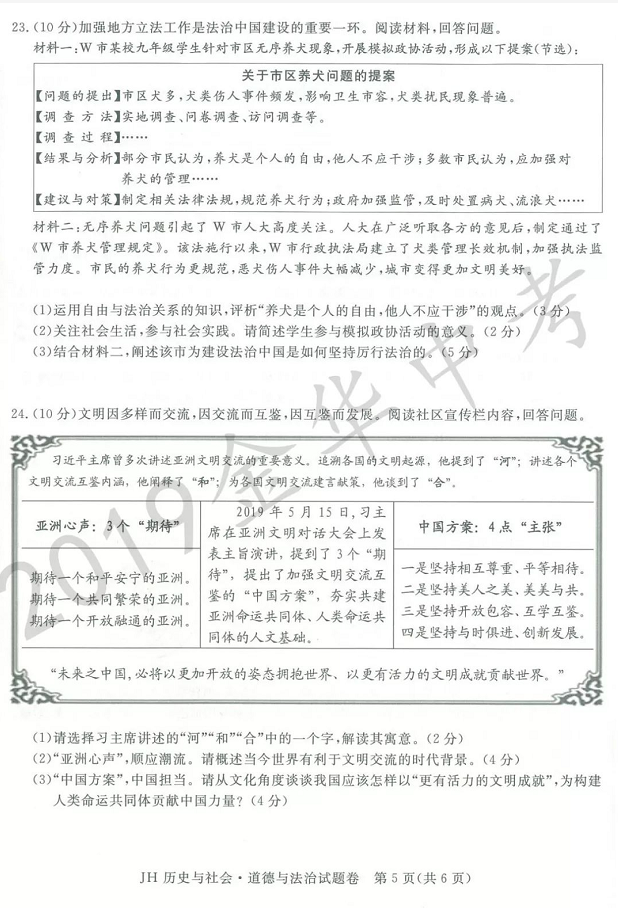 23.(10分)加强地方立法工作是法治中国建设的重要一环。阅读材料,回答问题。
材料一:W市某校九年级学生针对市区无序养犬现象,开展模拟政协活动,形成以下提案(节选):
关于市区养犬问题的提案
【问题的提出】市区犬多,犬类伤人事件频发,影响卫生市容,犬类扰民现象普遍。
【调查方法】实地调查、问卷调查、访问调查等。
【调查过程】……
【结果与分析】部分市民认为,养犬是个人的自由,他人不应干涉;多数市民认为,应加强对
养犬的管理……
【建议与对策】制定相关法律法规,规范养犬行为;政府加强监管,及时处置病犬、流浪犬……
材料二:无序养犬问题引起了W市人大高度关注。人大在广泛听取各方的意见后,制定通过了
《W市养犬管理规定》。该法施行以来,W市行政执法局建立了犬类管理长效机制,加强执法监
管力度。市民的养犬行为更规范,恶犬伤人事件大幅减少,城市变得更加文明美好。
(1)运用自由与法治关系的知识,评析“养犬是个人的自由,他人不应干涉”的观点。(3分)
(2)关注社会生活,参与社会实践。请简述学生参与模拟政协活动的意义。(2分)
(3)结合材料二,阐述该市为建设法治中国是如何坚持厉行法治的。(5分)
24.(10分)文明因多样而交流,因交流而互鉴,因互鉴而发展。阅读社区宣传栏内容,回答问题。
习近平主席曾多次讲述亚洲文明交流的重要意义。追溯各国的文明起源,他提到了“河”;讲述各个
文明交流互鉴内涵,他阐释了“和”;为各国文明交流建言献策,他谈到了“合”。
亚洲心声:3个“期待”
期待一个和平安宁的亚洲。
期待一个共同繁荣的亚洲。
期待一个开放融通的亚洲。
2019年5月15日,习主
席在亚洲文明对话大会上发
表主旨演讲,提到了3个“期
待”,提出了加强文明交流互
鉴的“中国方案”,夯实共建
亚洲命运共同体、人类命运共
同体的人文基础。
中国方案:4点“主张”
一是坚持相互尊重、平等相待。
二是坚持美人之美、美美与共。
三是坚持开放包容、互学互鉴。
四是坚持与时俱进、创新发展。
“未来之中国,必将以更加开放的姿态拥抱世界、以更有活力的文明成就贡献世界。”
(1)请选择习主席讲述的“河”“和”“合”中的一个字,解读其寓意。(2分)
(2)“亚洲心声”,顺应潮流。请概述当今世界有利于文明交流的时代背景。(4分)
(3)“中国方案”,中国担当。请从文化角度谈谈我国应该怎样以“更有活力的文明成就”,为构建
人类命运共同体贡献中国力量?(4分)
JH历史与社会·道德与法治试题卷 第5页(共6页)
2019金华中考